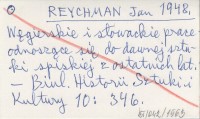 REYCHMAN Jan 1948.
Węgierskie i słowackie prace
odnoszące się do dawnej sztu-
ki spiskiej z ostatnich lat.
— Biul. Historii Sztuki i
Kultury 10: 346.